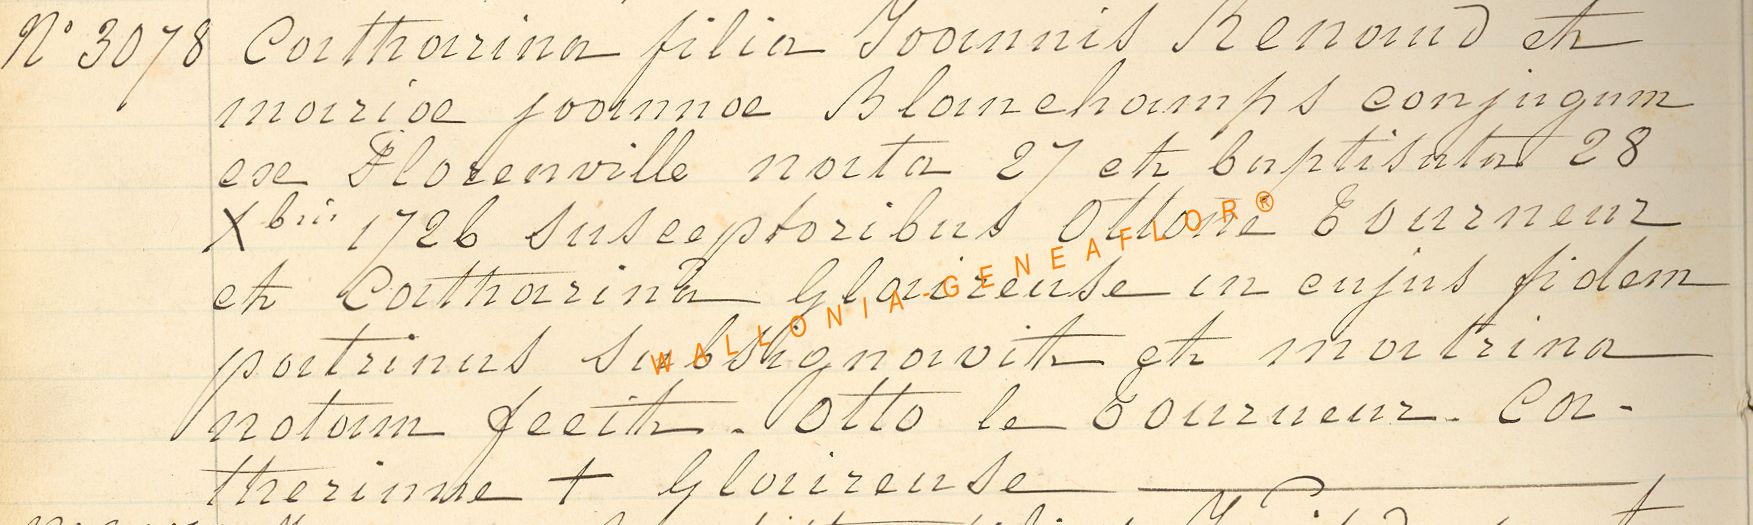 N° 3078 Catharina filia Joannis Renaud et
mariae joannae Blanchamps conjugum
ex Florenville nata 27 et baptisata 28
Xbris 1726 susceptoribus Ottone Tourneur
et Catharina Glaireuse in cujus fidem
patrinus subsignavit et matrina
notam fecit. Otto le Tourneur. Ca-
therinne + Glaireuse
WALLONIA-GENEAFLOR®